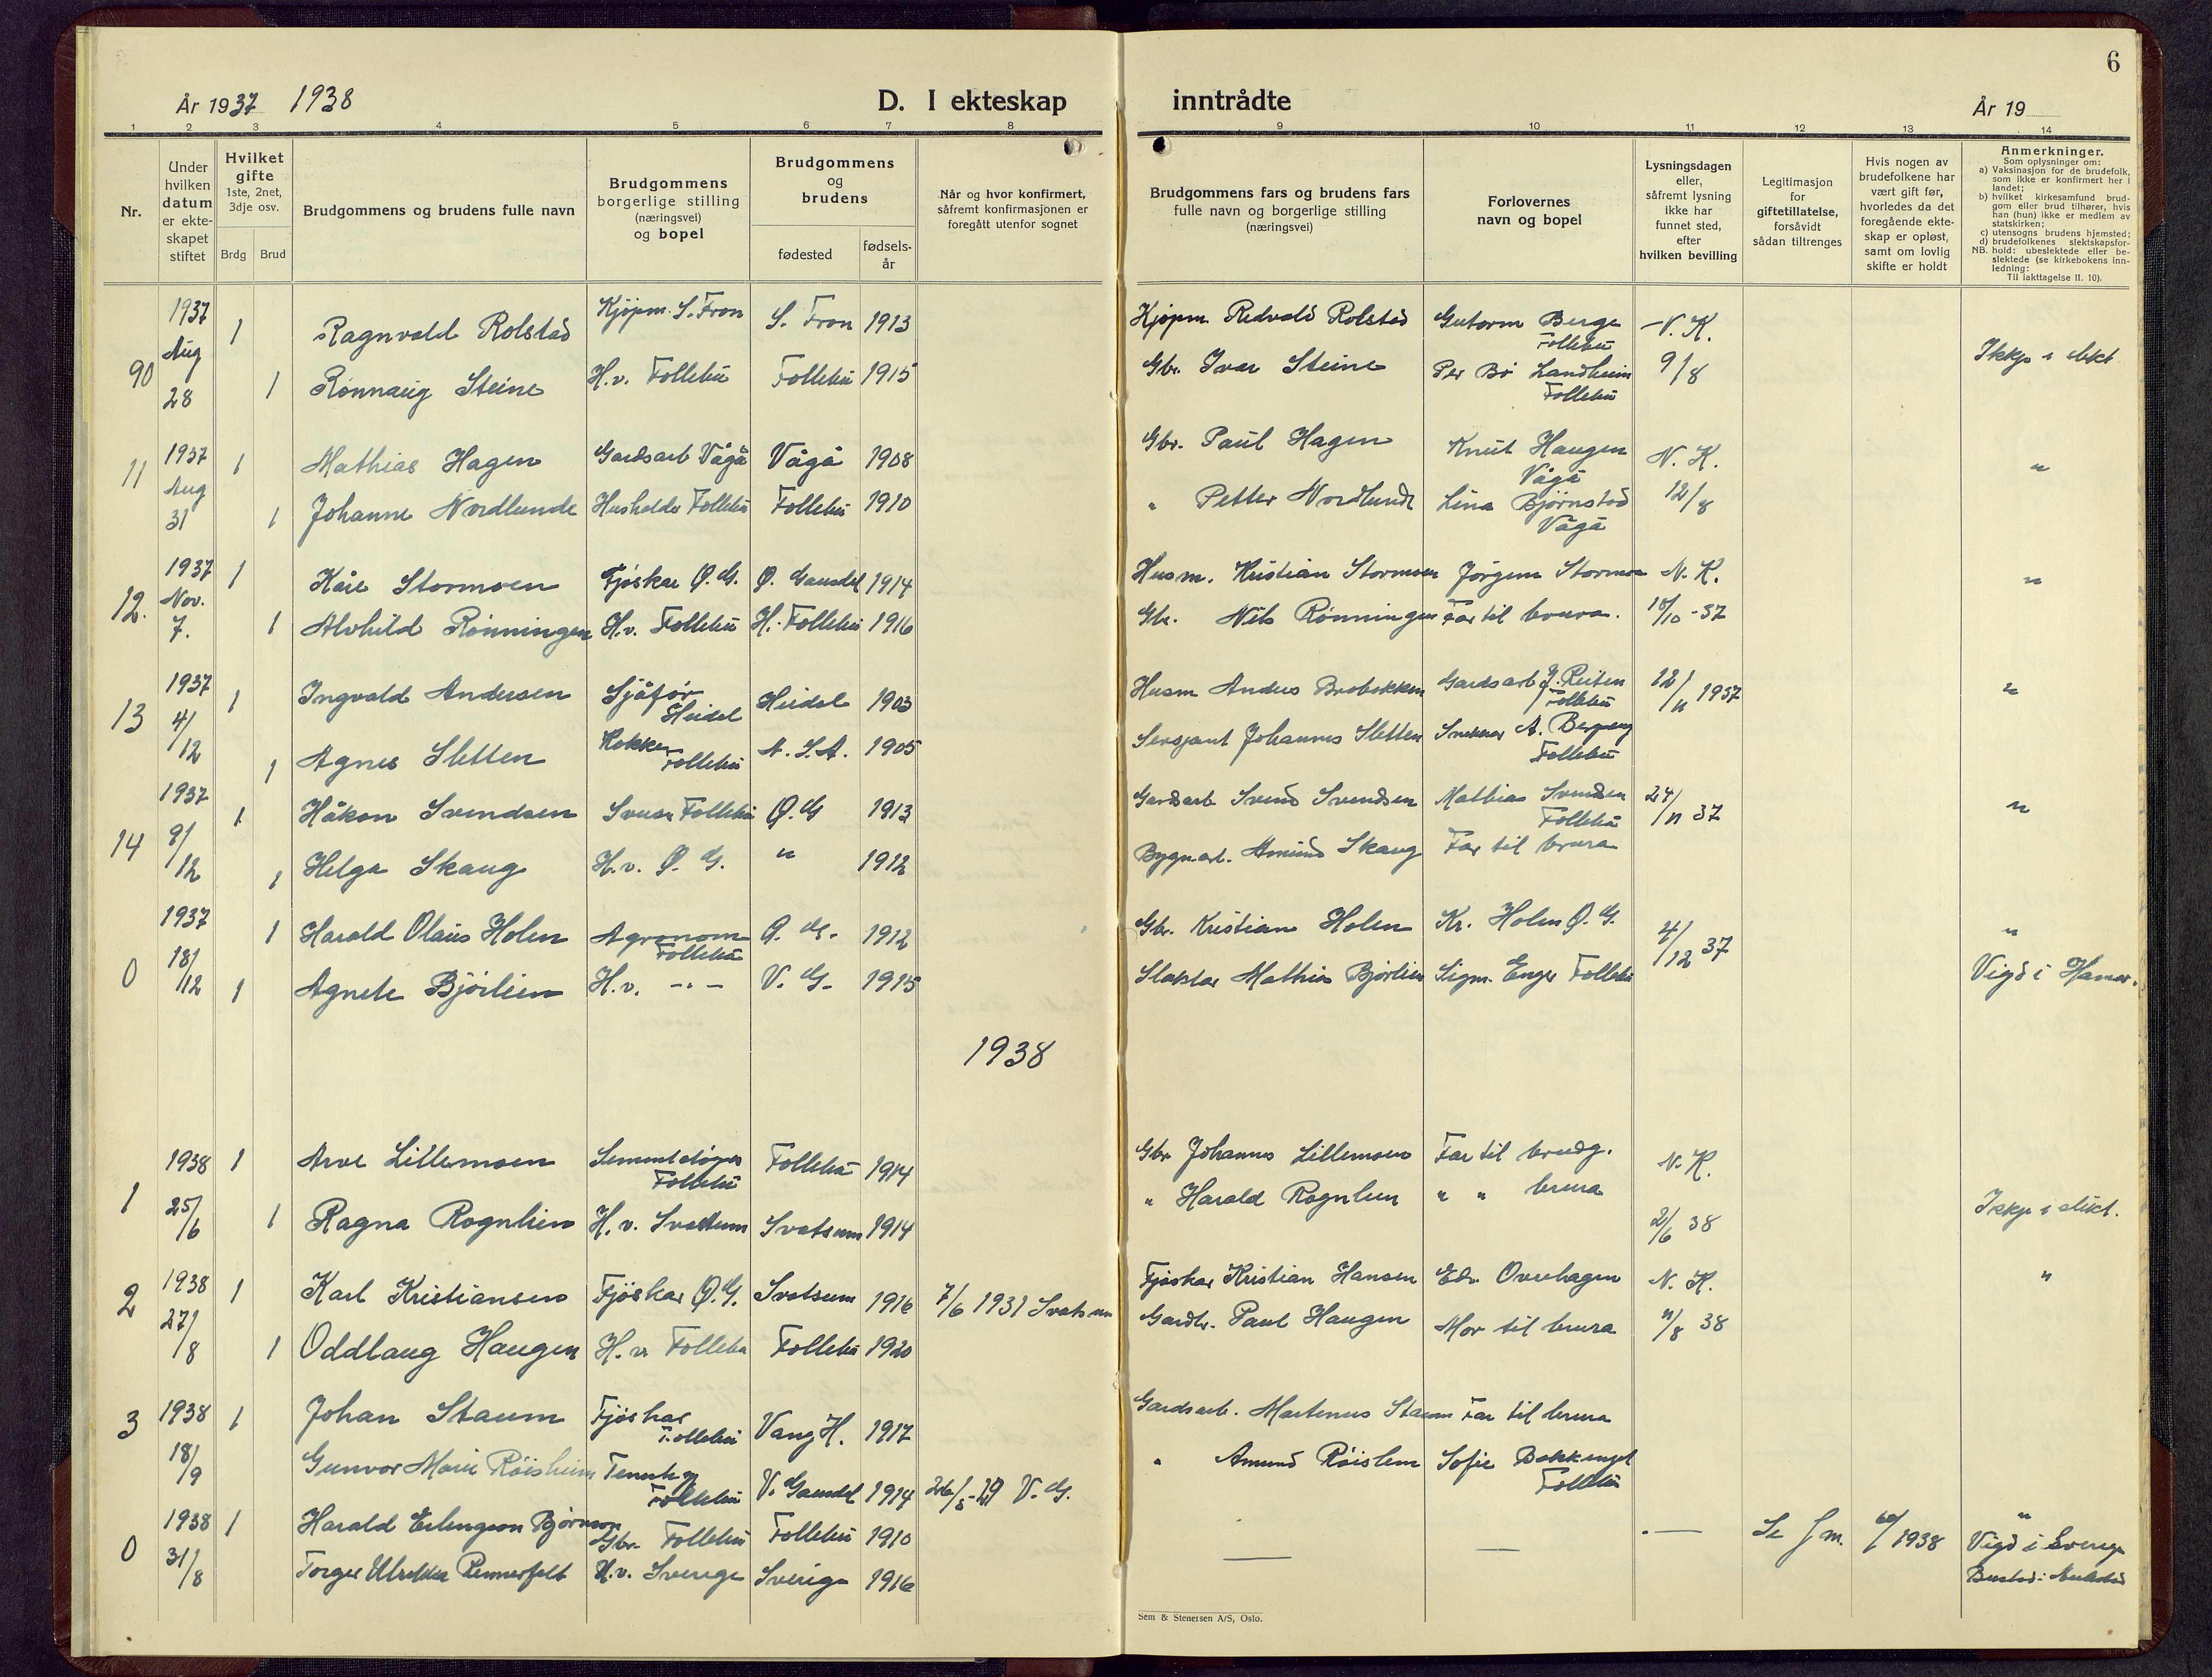 År 1937 1938
D. I ekteskap inntrådte
År 19
6
1 2 3 4 5 6 7 8 9 10 11 12 13 14
Nr.
Under hvilken datum er ekteskapet stiftet
Hvilket gifte 1ste, 2net, 3dje osv.
Brdg Brud
Brudgommens og brudens fulle navn
Brudgommens borgerlige stilling (næringsvei) og bopel
Brudgommens og brudens
fødested
fødselsår
Når og hvor konfirmert, såfremt konfirmasjonen er foregått utenfor sognet
Brudgommens fars og brudens fars fulle navn og borgerlige stilling (næringsvei)
Forlovernes navn og bopel
Lysningsdagen eller, såfremt lysning ikke har funnet sted, efter hvilken bevilling
Legitimasjon for giftetillatelse, forsåvidt sådan tiltrenges
Hvis nogen av brudefolkene har vært gift før, hvorledes da det foregående ekteskap er opløst, samt om lovlig skifte er holdt
Anmerkninger.
Som oplysninger om:
a) Vaksinasjon for de brudefolk, som ikke er konfirmert her i landet;
b) hvilket kirkesamfund brudgom eller brud tilhører, hvis han (hun) ikke er medlem av statskirken;
c) utensogns brudens hjemsted;
d) brudefolkenes slektskapsforhold: ubeslektede eller beslektede (se kirkebokens innledning:
NB. Til iakttagelse II. 10).
1937 1 Ragnvald Rolstad Kjøpm. S. Fron S. Fron 1913 Kjøpm. Redvald Rolstad Guttorm Berge Follebu N. K.
90 Aug 28 1 Rønnaug Steine H.v. Follebu Follebu 1915 Gbr. Ivar Steine Per Bø Landheim Follebu 9/8 Ikkje i slekt
11 1937 1 Mathias Hagen Gardsarb Vågå Vågå 1908 Gbr. Paul Hagen Knut Haugen Vågå N. K. "
Aug 31 1 Johanne Nordlunde Husholder Follebu Follebu 1910 " Petter Nordlunde Lina Bjørnstad Vågå 12/8
12. 1937 1 Kåre Stormoen Fjøskar Ø.G. Ø. Gausdal 1914 Husm. Kristian Stormoen Jørgen Stormoen N. K. "
Nov. 7. 1 Alvhild Rønningen H.v. Follebu Follebu 1916 Gbr. Nils Rønningen Far til brura. 18/10-37
13 1937 1 Ingvald Andersen Sjåfør Heidal Heidal 1903 Husm Anders Brobakken Gardsarb J. Reiten Follebu 12/11 1937 "
4/12 1 Agnes Sletten Kokke Follebu N.S.A. 1905 Sersjant Johannes Sletten A. Bergeng Follebu
14 1937 1 Håkon Svendsen Follebu Ø.G 1913 Gardsarb Svend Svendsen Mathias Svendsen Follebu 24/11 37 "
9/12 1 Helga Skaug H.v. Ø. G. " 1912 Bygn.arb. Amund Skaug Far til brura
0 1937 1 Harald Olaus Holen Agronom Follebu Ø. G. 1912 Gbr. Kristian Holen Kr. Holen Ø. G. 4/12 37 "
18/12 1 Agnete Bjørlien H.v. -"- V. G. 1915 Slaktar Mathias Bjørlien Sigm. Enger Follebu Vigd i Hamar.
1938
1 1938 1 Arve Lillemoen Sementstøper Follebu Follebu 1914 Gbr Johannes Lillemoen Far til brudg. N. K.
25/6 1 Ragna Rognlien H.v. Svatsum Svatsum 1914 " Harald Rognlien " " brura 2/6 38 Ikkje i slekt.
2 1938 1 Karl Kristiansen Fjøskar Ø.G. Svatsum 1916 7/6 1931 Svatsum Fjøskar Kristian Hansen Edv. Overhagen N. K. "
27/8 1 Oddlaug Haugen H.v Follebu Follebu 1920 Gardbr. Paul Haugen Mor til brura 11/8 38
3 1938 1 Johan Staum Fjøskar Follebu Vang H. 1917 Gardsarb. Martenus Staum Far til brura
18/9 Gunvor Marie Røisheim Follebu V. Gausdal 1914 26/5-29 V. G. " Amund Røislien Sofie Bakkenget Follebu
0 1938 1 Harald Erlingson Bjørnson Gbr. Follebu Follebu 1910 Se 1938 " Vigd i Sverige
31/8 Ulrikka Rennerfelt H.v. Sverige Sverige 1916 Bustad: Aulestad
Sem & Stenersen A/S, Oslo.